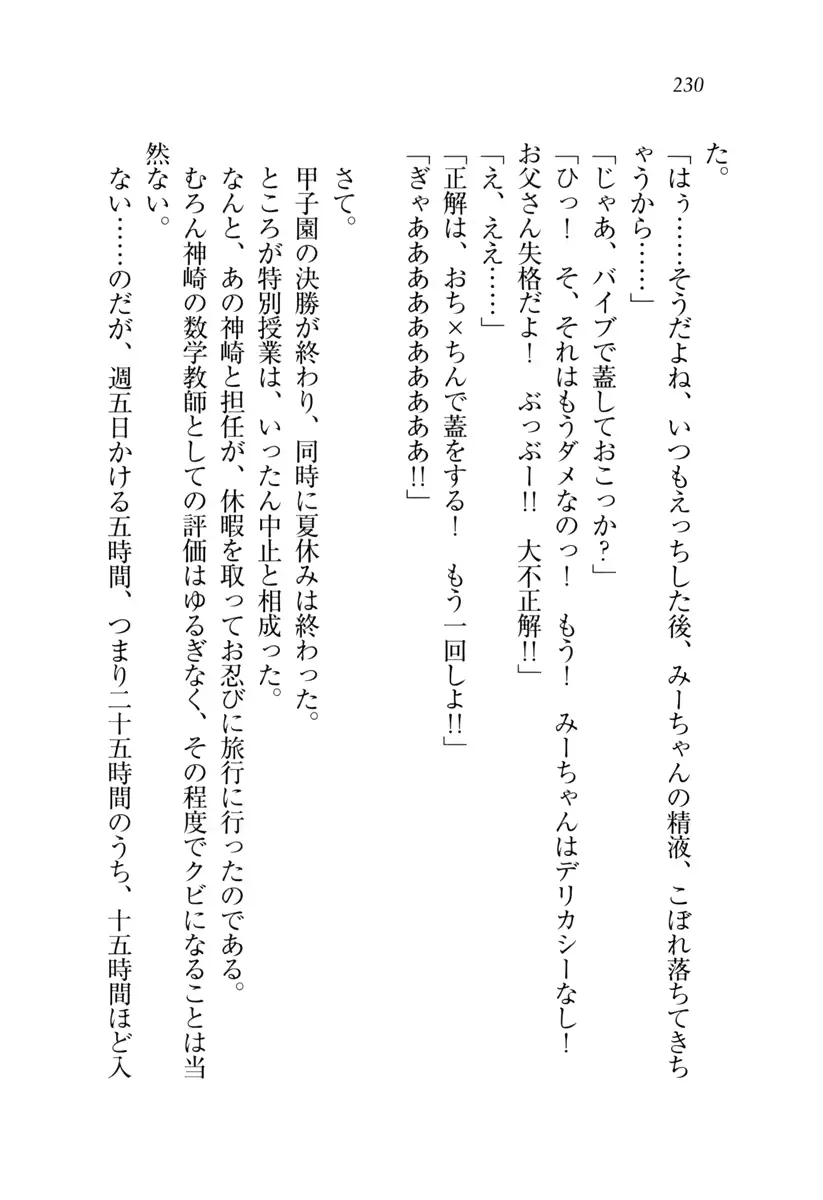 230
た。
「はぅ……そうだよね、いつもえっちした後、みーちゃんの精液、こぼれ落ちてきち
ゃうから……」
「じゃあ、バイブで蓋しておこっか？」
「ひっ！　そ、それはもうダメなのっ！　もう！　みーちゃんはデリカシーなし！
お父さん失格だよ！　ぶっぶー!!　大不正解!!」
「え、ええ……」
「正解は、おち×ちんで蓋をする！　もう一回しよ!!」
「ぎゃあああああああああ!!」
さて。
甲子園の決勝が終わり、同時に夏休みは終わった。
ところが特別授業は、いったん中止と相成った。
なんと、あの神崎と担任が、休暇を取ってお忍びに旅行に行ったのである。
むろん神崎の数学教師としての評価はゆるぎなく、その程度でクビになることは当
然ない。
ない……のだが、週五日かける五時間、つまり二十五時間のうち、十五時間ほど入